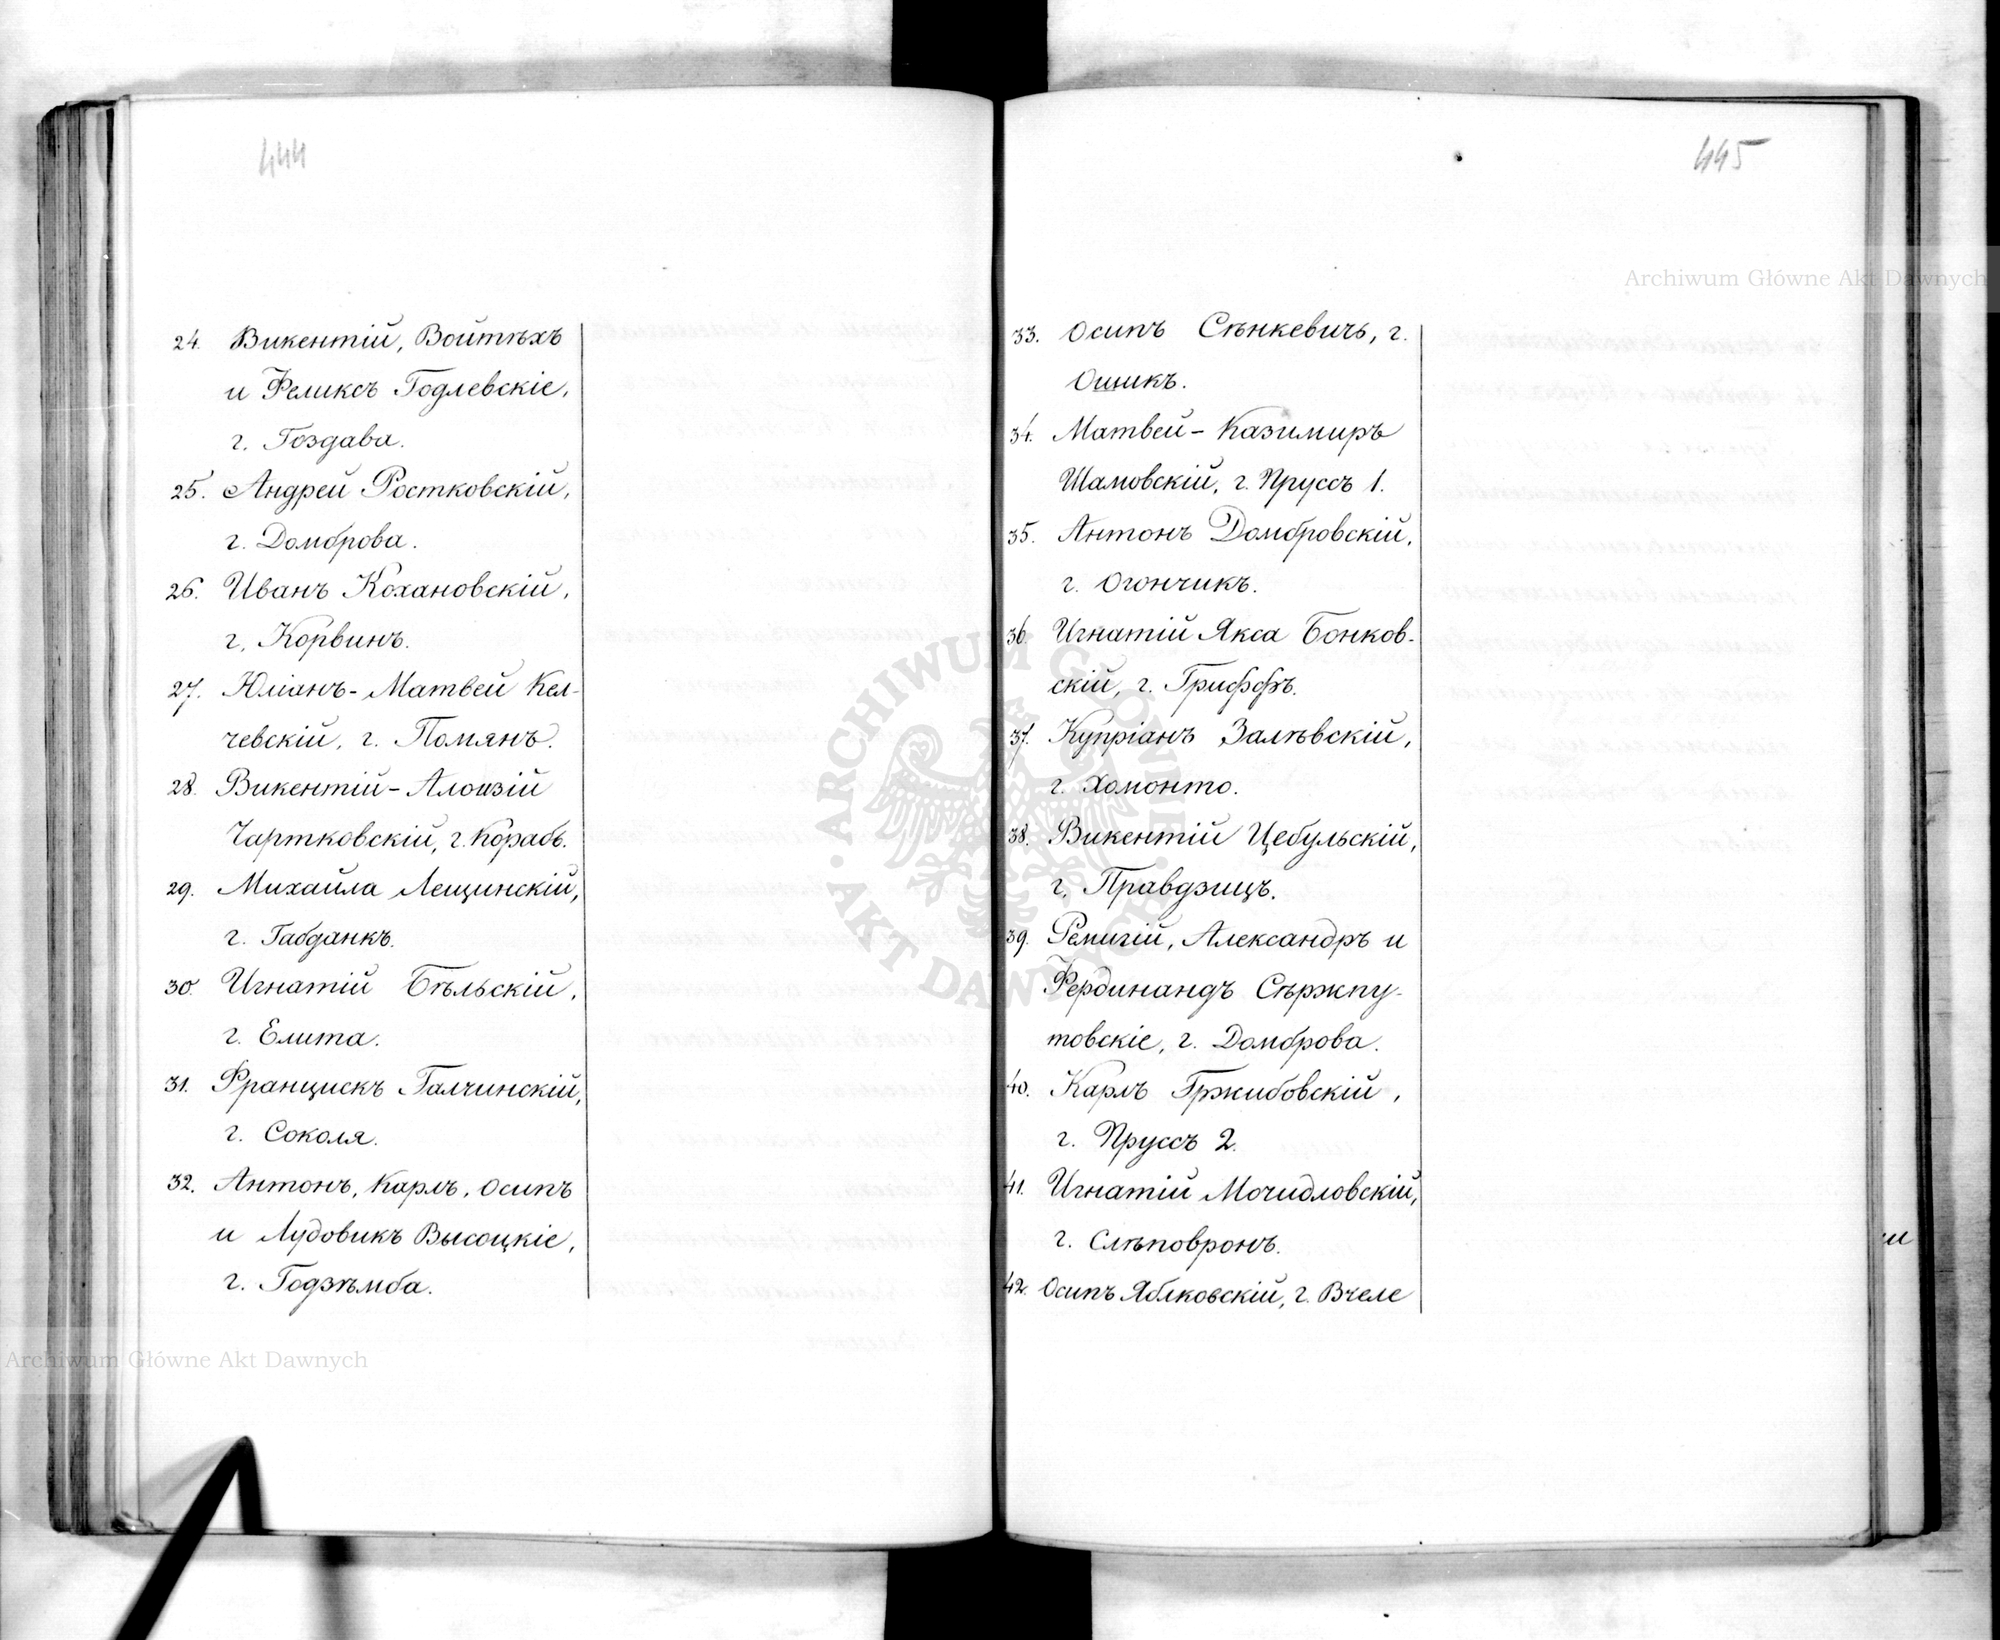 444
24. Викентій, Войтѣхъ
и Феликсъ Годлевскіе,
г. Гоздава.
25. Андрей Ростковскій,
г. Домброва.
26. Иванъ Кохановскій,
г. Корвинъ.
27. Юліанъ-Матвей Кел-
чевскій, г. Помянъ.
28. Викентій-Алоизій
Чартковскій, г. Корабь.
29. Михайла Лещинскій,
г. Габданкъ.
30. Игнатій Бѣльскій,
г. Елита.
31. Францискъ Галчинскій,
г. Соколя.
32. Антонъ, Карлъ, Осипъ
и Лудовикъ Высоцкіе,
г. Годзѣмба.
445
33. Осипъ Сѣнкевичь, г.
Ошикъ.
34. Матвей-Казимиръ
Шамовскій, г. Пруссъ 1.
35. Антонъ Домбровскій,
г. Огончикъ.
36. Игнатій Якса Бонков-
скій, г. Гриффъ.
37. Купріанъ Залѣвскій,
г. Хомонто.
38. Викентій Цебульскій,
г. Правдзицъ.
39. Ремигій, Александръ и
Фердинандъ Сѣржпу-
товскіе, г. Домброва.
40. Карлъ Гржибовскій,
г. Пруссъ 2.
41. Игнатій Мочидловскій,
г. Слѣповронъ.
42. Осипъ Яблковскій, г. Вчеле
Archiwum Główne Akt Dawnych
Archiwum Główne Akt Dawnych
ARCHIWUM GŁÓWNE AKT DAWNYCH